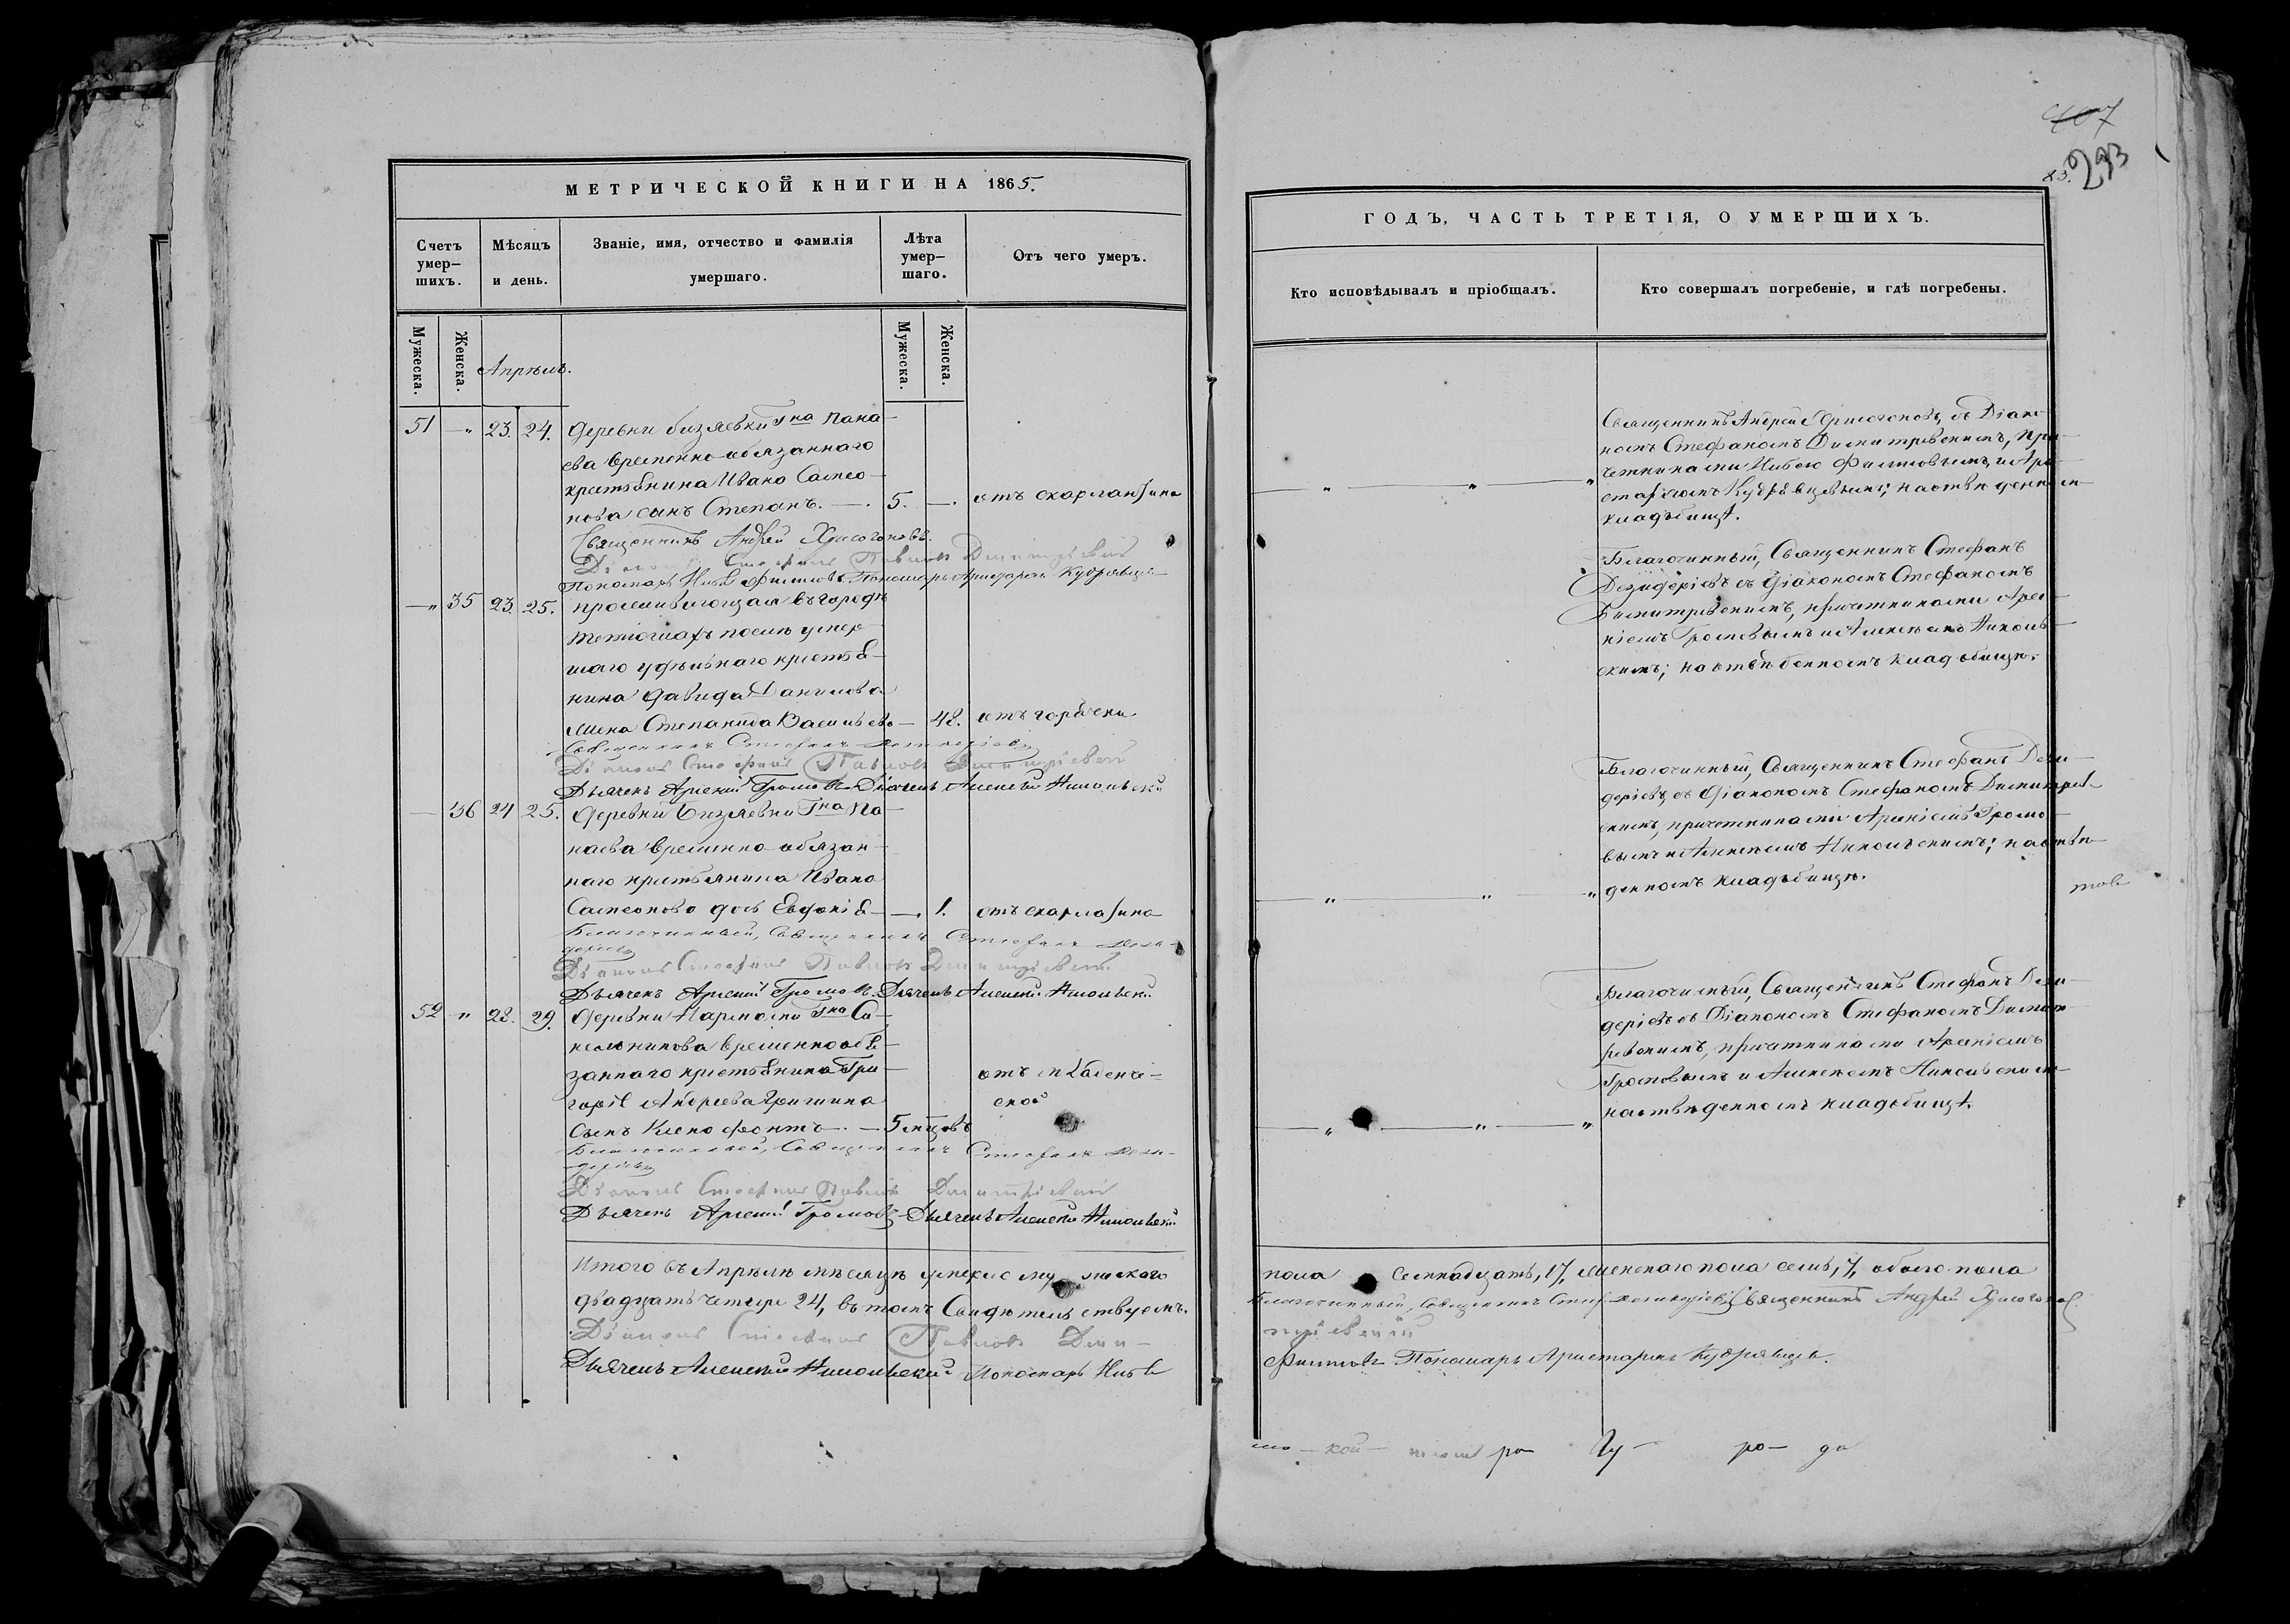 МЕТРИЧЕСКОЙ КНИГИ НА 1865.
Счетъ умер-шихъ.
Мѣсяцъ и день.
Званіе, имя, отчество и фамилія умершаго.
Лѣта умер-шаго.
Отъ чего умеръ.
Мужеска.
Женска.
Апрѣль.
Мужеска.
Женска.
51 — " 23. 24. Деревни Бизяевки Гна Пана-
ева временно-обязаннаго
крестьянина Ивана Самсо-
нова сынъ Степанъ. — 5. — отъ скарлатина
Священникъ Андрей Хрисогоновъ.
Діаконъ Стефанъ Павловъ Димитріевскій
Пономарь Нилъ Филиповъ Пономарь Аристархъ Кудрявцевъ
— " 35 23. 25. проживающая въ городѣ
Тетюшахъ послѣ умер-
шаго удѣльнаго крестья-
нина Давида Данилова
жена Степанида Васильева — 48. отъ горячки
Священникъ Стефанъ Дезидеріевъ
Діаконъ Стефанъ Павловъ Димитріевскій
Дьячекъ Арсеній Громовъ Дьячекъ Алексѣй Никольскій
— 36 24 25. Деревни Бизяевки Гна Па-
наева временно обязан-
наго крестьянина Ивана
Самсонова дочь Евдокія — 1. отъ скарлатина
Благочинный, Священникъ Стефанъ Дези-
деріевъ
Діаконъ Стефанъ Павловъ Димитріевскій
Дьячекъ Арсеній Громовъ. Дьячекъ Алексѣй Никольскій
52 " 28. 29. Деревни Нармонки Гна Са-
временнообя-
заннаго крестьянина Гри-
горія Андреева Гришина
сынъ Ксенофонтъ — 5 мцовъ отъ младенче-
ской
Благочинный, Священникъ Стефанъ Дези-
деріевъ
Діаконъ Стефанъ Павловъ Димитріевскій
Дьячекъ Арсеній Громовъ Дьячекъ Алексѣй Никольскій
Итого въ Апрѣлѣ мѣсяцѣ умерло мужескаго
двадцать четыре 24, въ томъ Свидѣтельствуемъ.
Діаконъ Стефанъ Павловъ Дими-
Дьячекъ Алексѣй Никольскій Пономарь Нилъ
407
83. 293
ГОДЪ, ЧАСТЬ ТРЕТІЯ, О УМЕРШИХЪ.
Кто исповѣдывалъ и пріобщалъ.
Кто совершалъ погребеніе, и гдѣ погребены.
Священникъ Андрей Хрисогоновъ, съ Діако-
номъ Стефаномъ Димитріевскимъ, при-
четниками Ниломъ Филиповымъ и Ари-
стархомъ Кудрявцевымъ; на отведенномъ
кладбищѣ.
Благочинный, Священникъ Стефанъ
Дезидеріевъ съ Діакономъ Стефаномъ
Димитріевскимъ, причетниками Арсе-
ніемъ Громовымъ и Алексѣемъ Николь-
скимъ; на отведенномъ кладбищѣ.
Благочинный, Священникъ Стефанъ Дези-
деріевъ, съ Діакономъ Стефаномъ Димитріев-
скимъ, причетниками Арсеніемъ Громо-
вымъ и Алексѣемъ Никольскимъ; на отве-
денномъ кладбищѣ.
Благочинный, Священникъ Стефанъ Дези-
деріевъ съ Діакономъ Стефаномъ Димит-
ріевскимъ, причетниками Арсеніемъ
Громовымъ и Алексѣемъ Никольскимъ
на отведенномъ кладбищѣ.
пола семнадцать, 17, женскаго пола семь, 7, обоего пола
Благочинный, Священникъ Стеф. Дезидеріевъ Священникъ Андрей Хрисогонов.
тріевскій
Филиповъ Пономарь Аристархъ Кудрявцевъ.
кой ро- Гу- ро- да